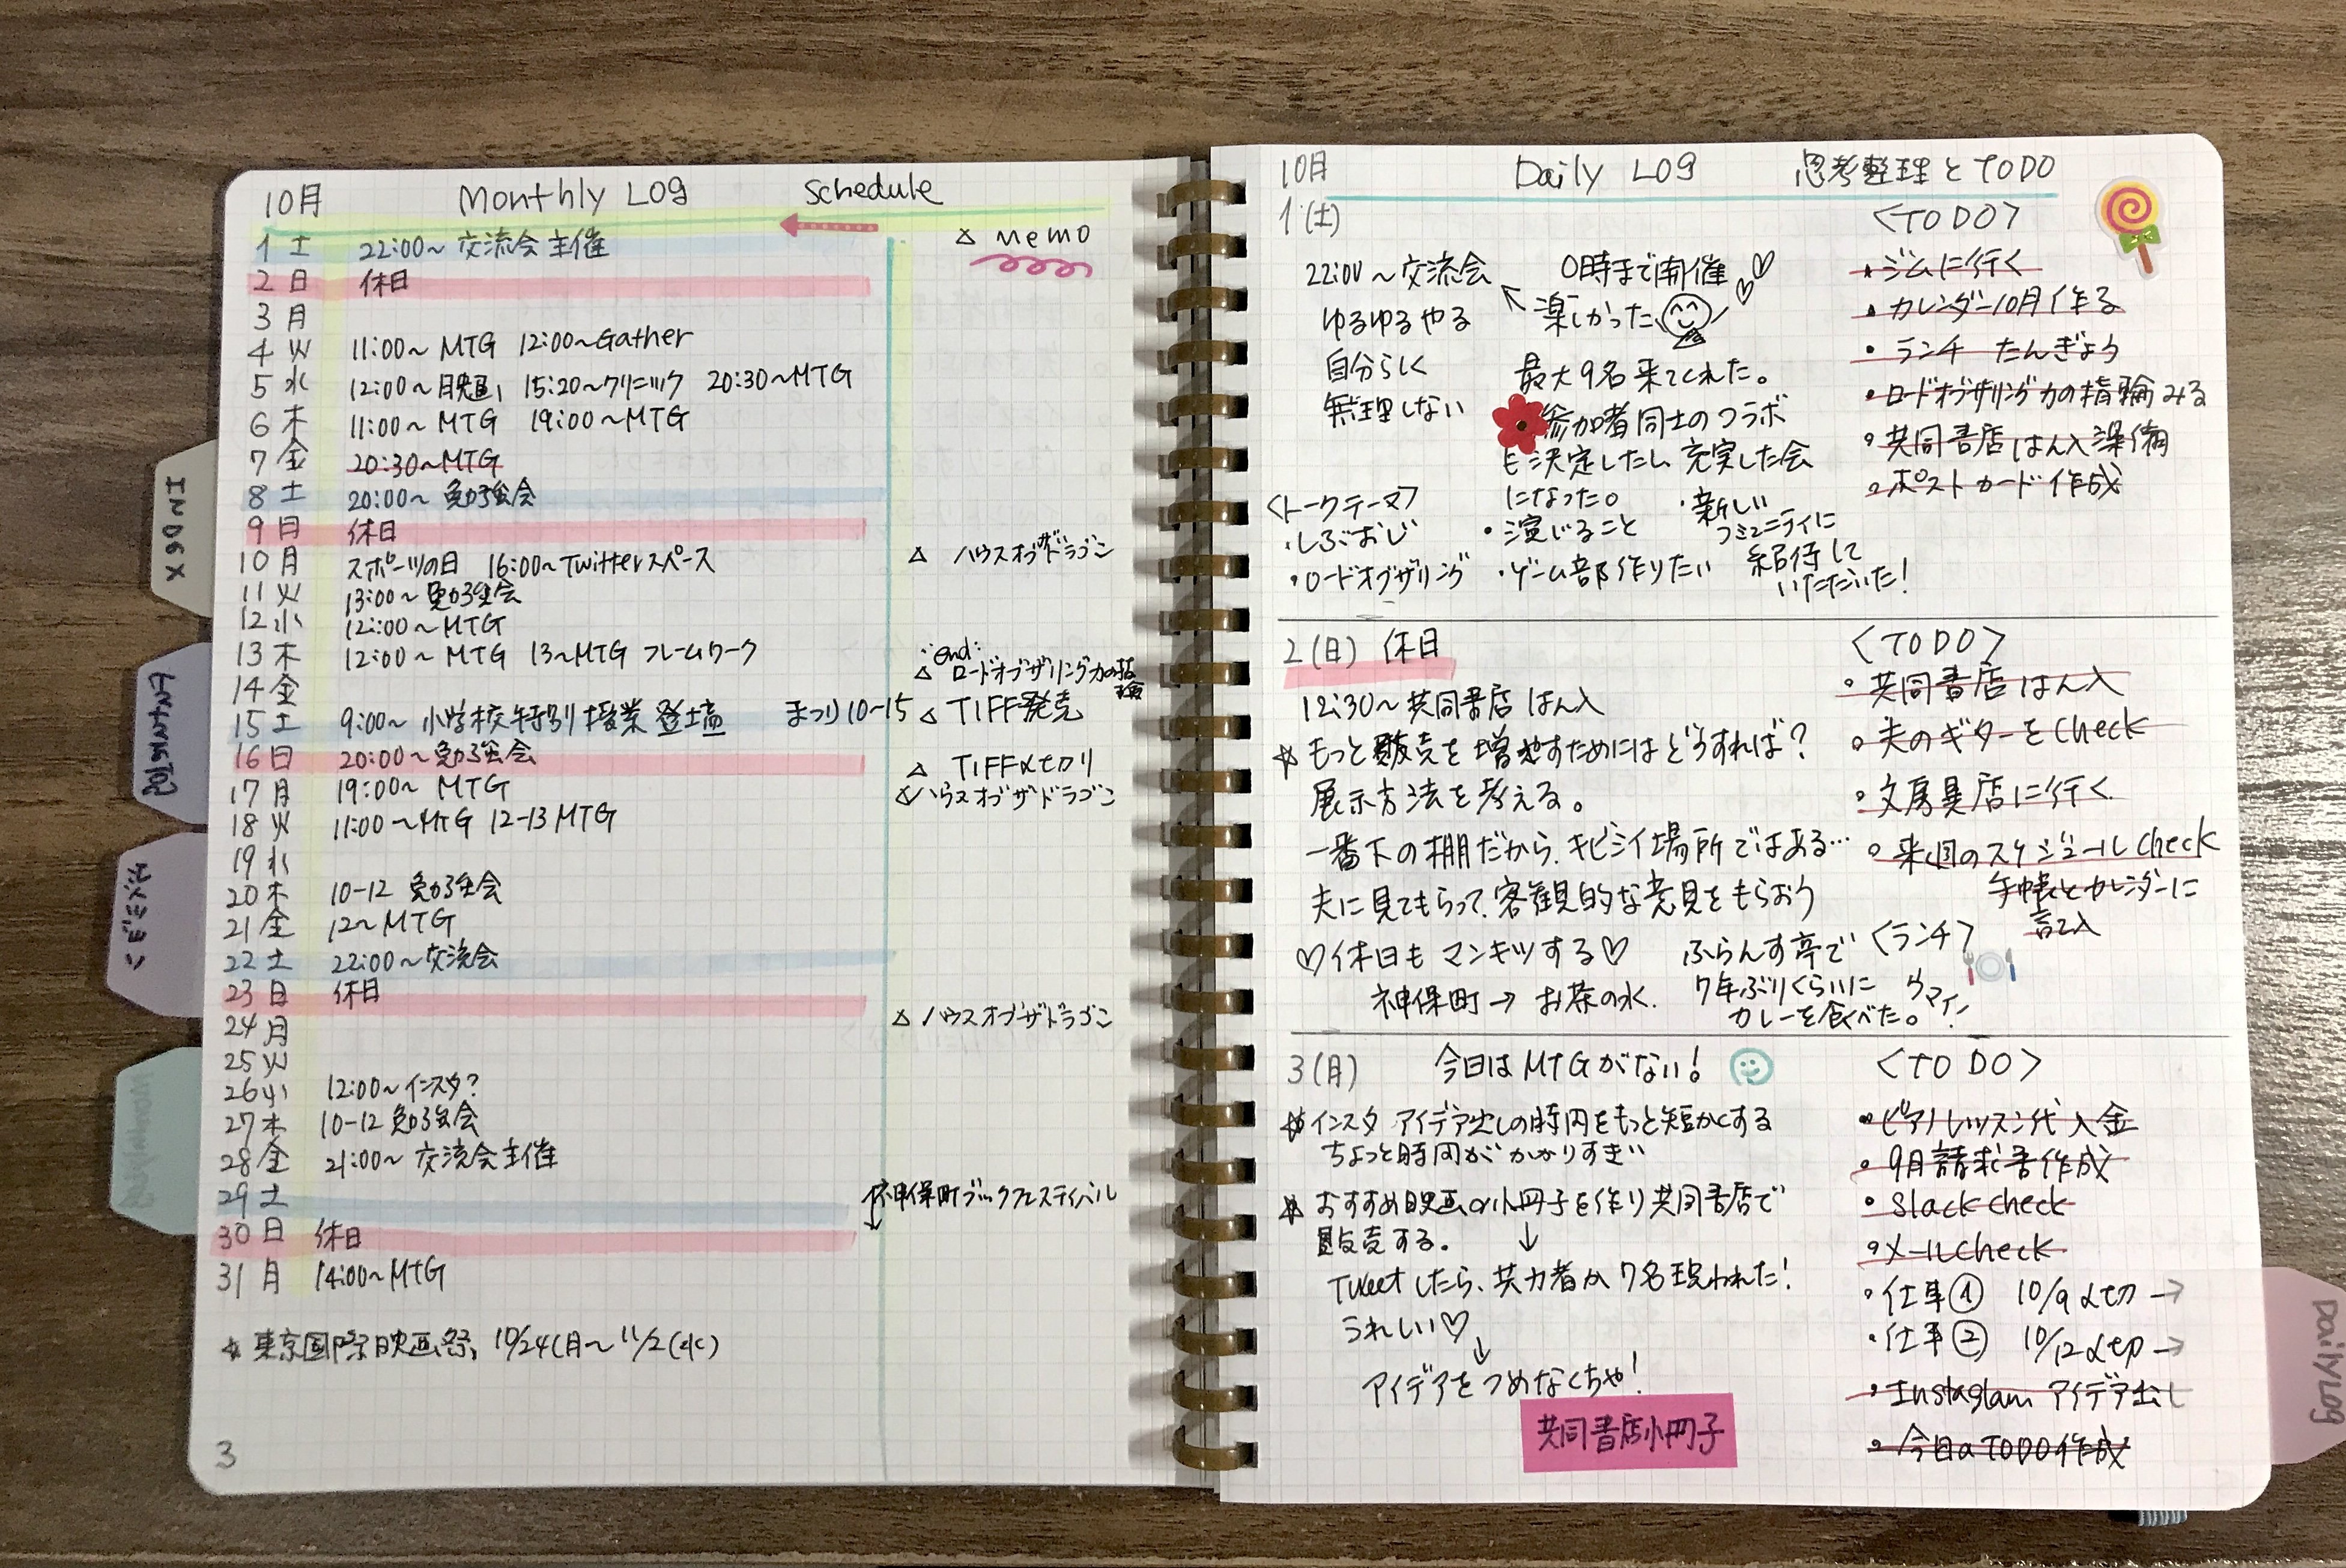 10月 Monthly LOG Schedule
1 土 22:00~ 交流会 主催
2 日 休日
3 月
4 火 11:00~ MTG 12:00~Gather
5 水 12:00~映画 15:20~クリニック 20:30~MTG
6 木 11:00~ MTG 19:00~MTG
7 金 20:30~MTG
8 土 20:00~ 勉強会
9 月 休日
10 月 スポーツの日 16:00~Twitterスペース
11 火 13:00~ 勉強会
12 水 12:00~MTG
13 木 12:00~ MTG 13~MTG フレームワーク
14 金
15 土 9:00~ 小学校特別授業 登壇 まつり10-15
16 日 20:00~勉強会
17 月 19:00~ MTG
18 火 11:00~MTG 12-13 MTG
19 水
20 木 10-12 勉強会
21 金 12~MTG
22 土 22:00~交流会
23 日 休日
24 月
25 火
26 水 12:00~インスタ?
27 木 10-12 勉強会
28 金 21:00~ 交流会主催
29 土
30 日 休日
31 月 14:00~MTG
☆ 東京国際映画祭 10/24(月~11/2(水)
3
△ MEMO
△ ハウスオブザドラゴン
end:
△ ロードオブザリング力の指輪
△ TIFF発売
△ TIFF〆切り
△ハウスオブザドラゴン
△ ハウスオブザドラゴン
神保町ブックフェスティバル
INDEX
Daily Log
10月 Daily LOG 思考整理とTODO
1 (土)
22:00~交流会
ゆるゆるやる
自分らしく
無理しない
0時まで開催
楽しかった
最大9名来てくれた。
参加者同士のコラボ
も決定したし 充実した会
になった。
<トークテーマ>
・しぶおじ
・ロードオブザリング
・演じること
・ゲーム部作りたい
・新しい
コミュニティに
招待して
いただいた!
<TODO>
・ジムに行く
・カレンダー10月作る
・ランチ たんぎょう
・ロードオブザリング力の指輪みる
・共同書店はん入準備
・ポストカード作成
2(日) 休日
12:30~共同書店 はん入
☆もっと販売を増やすためにはどうすれば?
展示方法を考える。
一番下の棚だから、キビシイ場所ではある…
夫に見てもらって、客観的な意見をもらおう
♡休日も マンキツする♡
神保町→ お茶の水.
ふらんす亭で 〈ランチ〉
7年ぶりくらいに ウマイ!
カレーを食べた。
<TODO>
・共同書店はん入
・夫のギターをcheck
・文房具店に行く
・来週のスケジュールcheck
手帳とカレンダーに
記入
3(月) 今日はMTGがない!
☆インスタ アイデア出しの時間をもっと短かくする
ちょっと時間がかかりすぎい
☆おすすめ映画の小冊子を作り共同書店で
販売する。 ↓
Tweetしたら、共力者か7名現われた!
うれしい♡
↓
アイデアをつめなくちゃ!
共同書店小冊子
<TODO>
・ピアノレッスン代入金
・9月請求書作成
・Slack check
・メールcheck
・仕事① 10/9〆切→
・仕事② 10/12〆切→
・Instaglam アイデア出し
・今日のTODO作成